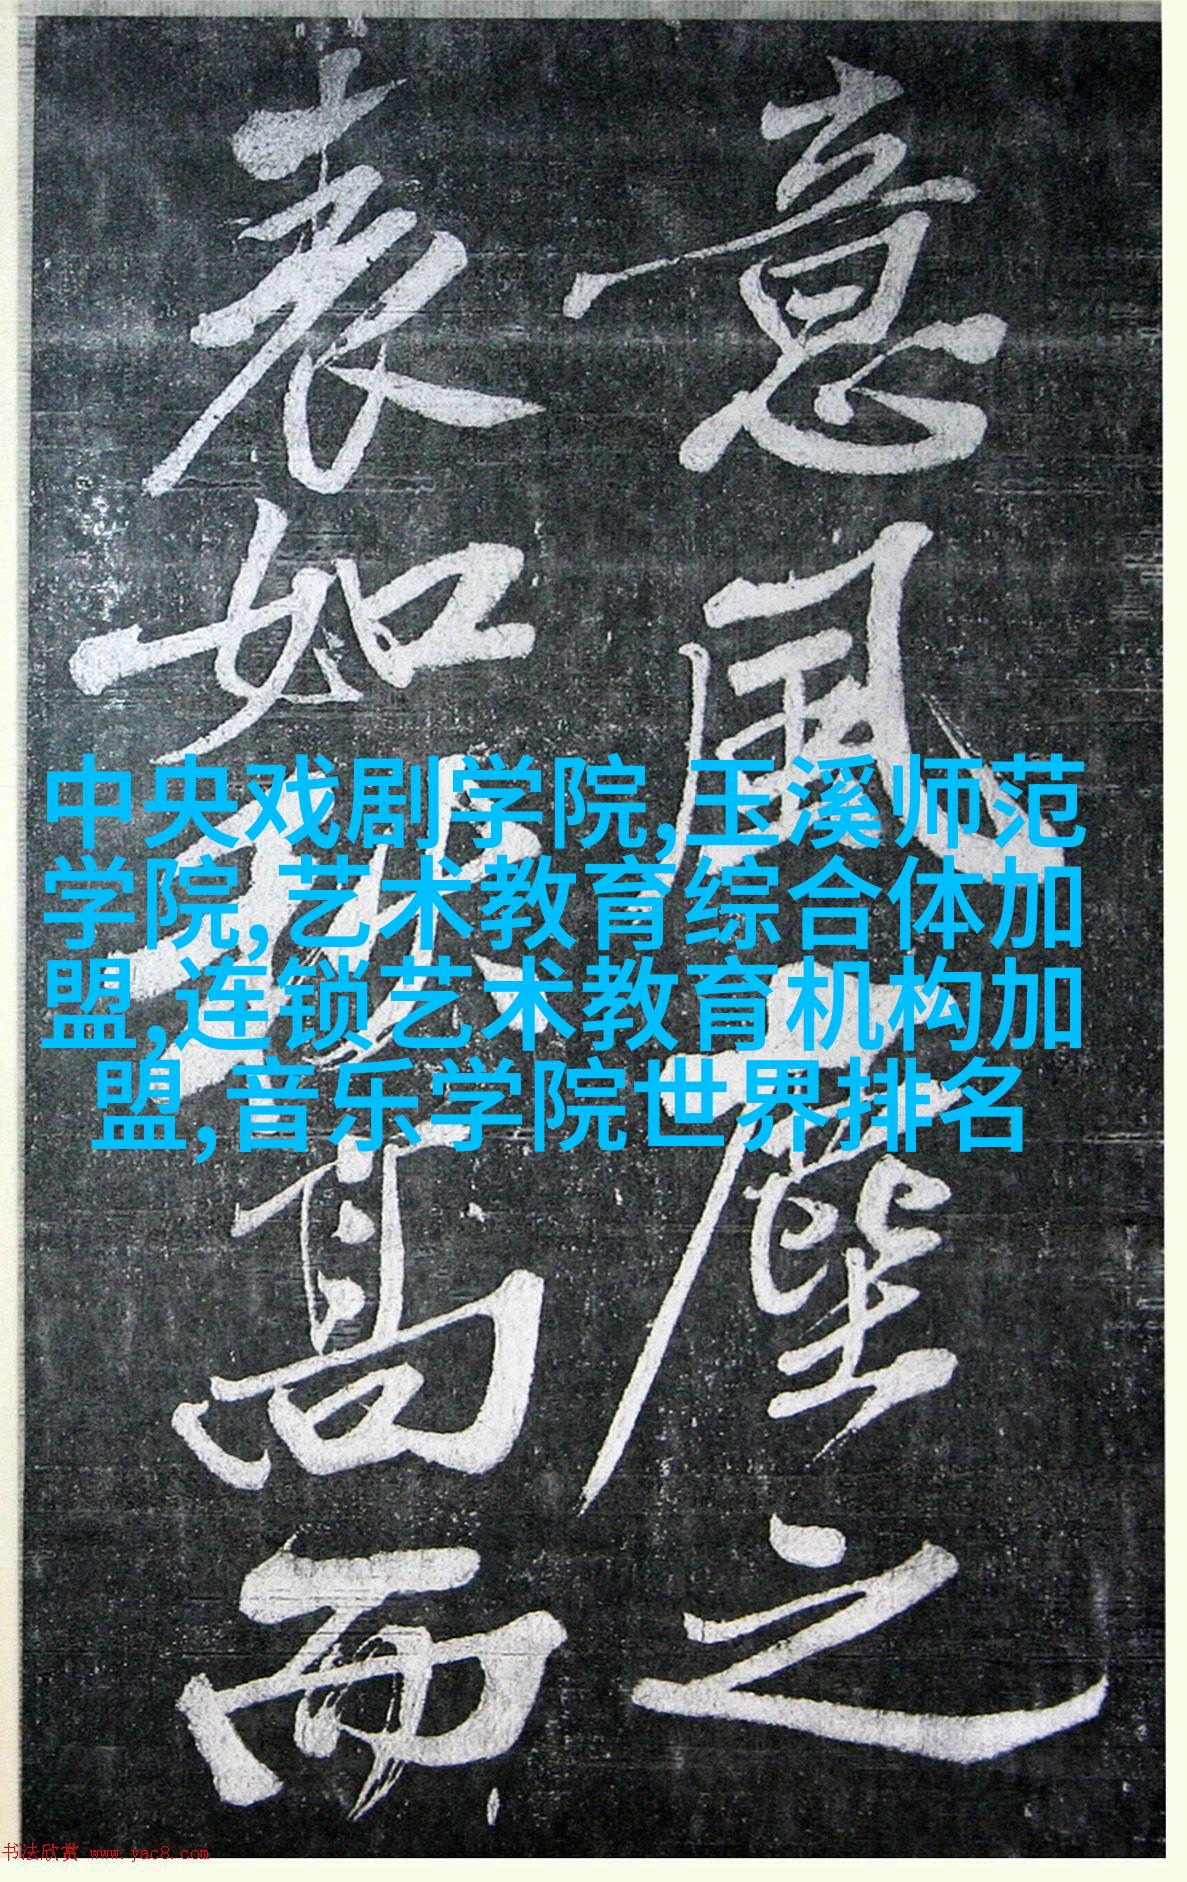 意風塵之
表如高而
中央戏剧学院,玉溪师范
学院,艺术教育综合体加
盟,连锁艺术教育机构加
盟,音乐学院世界排名
书法欣赏 www.yac8.com